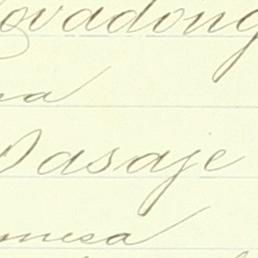 ovadong
na
Pasaje
mesa